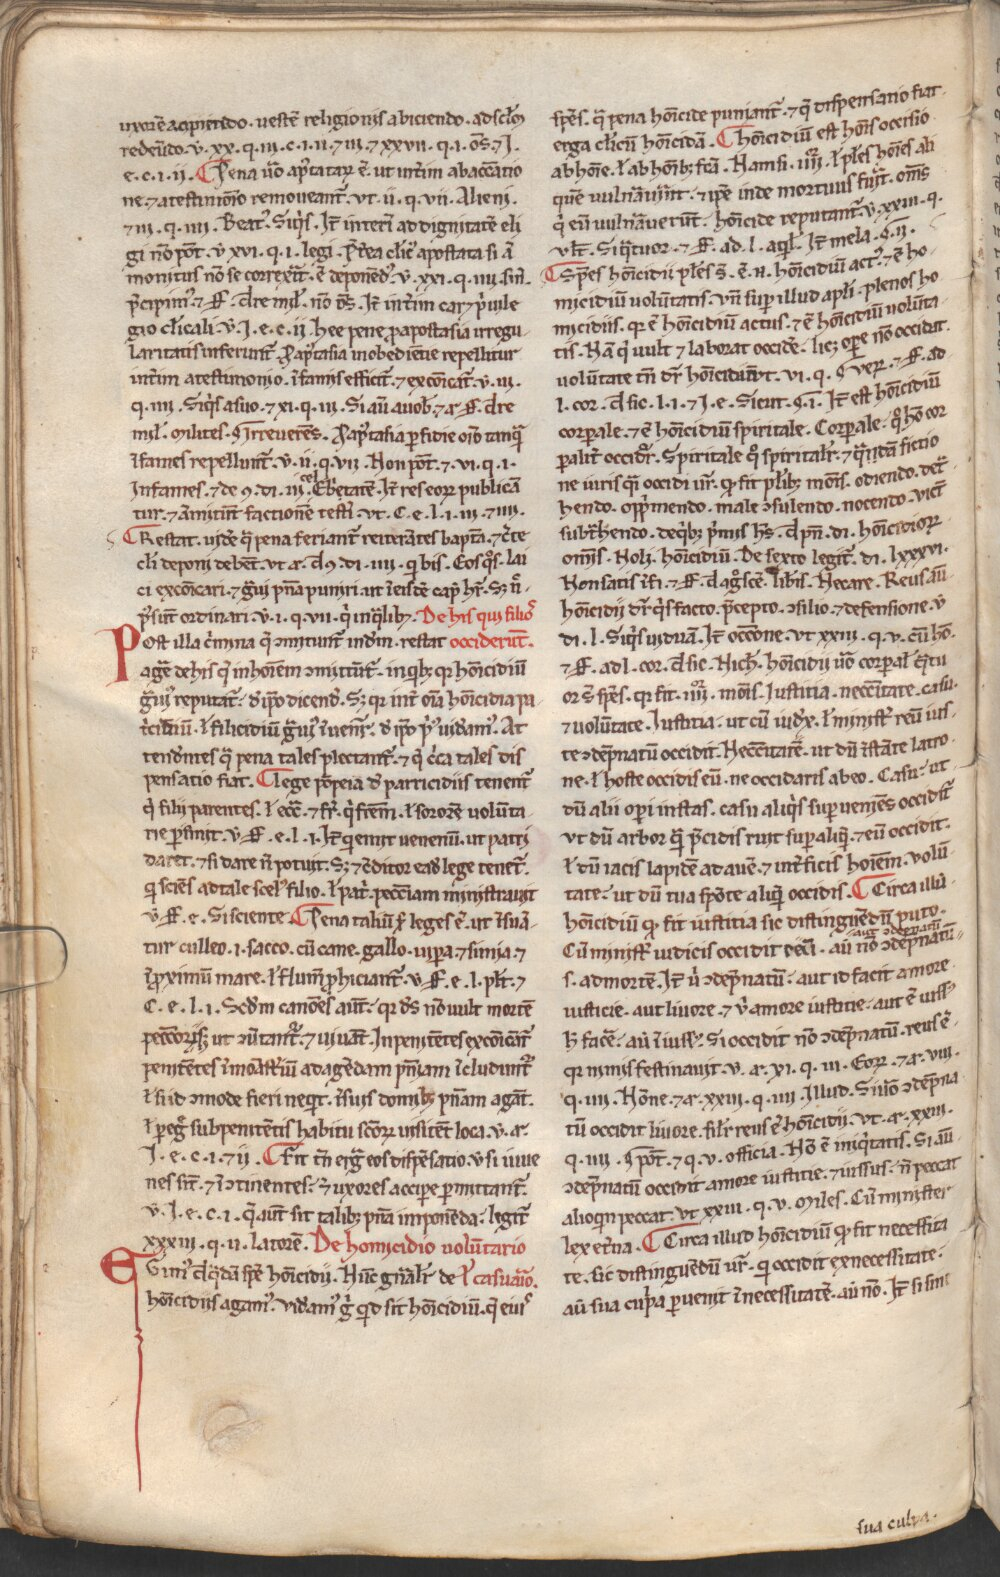 uxorē accipiendo. uestē religionis abiciendo. ad sclm̄
redeūdo. v. xx. q. iii. c. i. ii. ⁊ iii. ⁊ xxvii. q. i. om̄s. ⁊ J.
e. c. i. ii. Pena u̓o apꝉatarꝝ ē. ut int̓im ab accōatio
ne. ⁊ a testimōio remoueant̄. vt. ii. q. vii. Alieni.
⁊ iii. q. iiii. Beat᷒. Siqͥs. Jt̄ int̓ri ad dignitatē eli
gi nō pōt. v̄ xvi. q. i. legi. p̄t̓ea clic᷒ apostata si a
monitus nō se correxit̄. ē deponēd᷒. v. xxi. q. iiii. sin̄.
p̄cipim᷒. ⁊ ff. d̄ re mil̄. nō ōs. Jt̄ int̓im caꝝ p̓uile
gio cl̓icali. v. J. e. c. ii. hee pene ꝓ apostasia irregu
laritatis inferunt̄. ꝓ apꝉasia inobediētie repellitur
int̓im a testimonio. īfamis efficit̄. ⁊ excōicat̄. v. iii.
q. iiii. Siqͥs a suo. ⁊ xi. q. iii. Si aū. a uob̄. ⁊ a. ff. d̄ re
mil̄. milites. § Irreuerēs. ꝓ apꝉasia perfidie oīo tanqͣ
īfames repellunt̄. v. ii. q. vii. Non pōt. ⁊ vi. q. i.
Jnfames. ⁊ de ꝯ. di. iii. celebꝛetatē. Jt̄ res eoꝝ publicā
tur. ⁊ āmitūt factionē testī. vt. C. e. l. i. iii. ⁊ iiii.
Restat. uidē q̄ pena feriant̄ reiterātes bapta. ⁊ c̓te
cli deponi debēt. vt a. d ꝯ. di. iiii. q bis. Eos qͦs. lai
ci excōicari. ⁊ gͣui pn̄a puniri. ut ī eisdē capͥ hr̄. Sꝫ n̄.
p̓sūt ordinari. v. i. q. vii. qͥ in qͣlibꝫ. De his qui filio᷒
Post illa c̓imina q̄ ꝯmitunt̄ in dn̄m. restat occiderūt.
agē de his q̄ in hoīem ꝯmittūt̄. in qͥbꝫ qꝛ homicidiū
gͣui᷒ reputat̄. d̄ ip̄o dicend̄. Sꝫ qꝛ int̓ oīa homicidia pa
t̓cidiū. ł filicidiū gͣui᷒ īuenit̄. d̄ ip̄o p᷒ uideam᷒. At
tendētes q̄ pena tales plectant̄. ⁊ q̄ c̓ca tales dis
pensatio fiat. Lege pōpeia d̄ parricidiis tenent̄
qͥ filii parentes. ł ecō. ⁊ fr̄. qͥ frēm. ł sororē uolūta
rie perimit. v. ff. e. l. i. Jt̄ qͥ emit uenenū. ut patri
daret. ⁊ si dare n̄ potuit. Sꝫ ⁊ c̓ditor eadē lege tenet̄.
qͥ sciēs ad tale scel᷒ filio. ł pat̓. peccūiam ministrauit
v. ff. e. Si sciente. Pena taliū ꝑ leges ē. ut īsuā
tur culleo. i. sacco. cū cane. gallo. uipera. ⁊ simia. ⁊
ī ꝓximū mare. ł flumē ꝓiciant̄. v. ff. e. l. pl̄t. ⁊
C. e. l. i. Scdm̄ canōes aūt. qꝛ dn̄s nō uult mortē
peccorꝛīs. ut ꝯutant̄. ⁊ uiuāt. Jn penitētes excōicāt̄
penitētes ī monastīū ad agēdam pn̄iam īcludunt̄
ł si id ꝯmode fieri neqͥt. ī suis domibꝫ pn̄iam agāt.
ł peregͥ. sub penitētis habitu scōꝝ uisitēt loca. v. a.
J. e. c. i. ⁊ ii. Fit tn̄ ergͣ eos dispēsatio. v si iuue
nes sīt. ⁊ īꝯtinentes. ⁊ uxores accipe permittant̄.
v. J. e. c. i. q̄ aūt sit talibꝫ pn̄ia imponēda. legit̄
xxxiii. q. ii. latorē. De homicidio uolūtario
Eunī clqͣdā spē homicidij. Nūc gn̄alit̓ de ł casuali.
homicidiis agam᷒. Videam᷒ g̓ qͥd sit homicidiū. q̄ ei᷒
spēs. q̄ pena homicide puniant̄. ⁊ q̄ dispensatio fiat
erga cl̓icū homicidā. Homicidiū est hoīs occisio
ab hoīe. ł ab hoībꝫ fcā. Nam si. unꝰ. ł ples hoīes ali
quē uulnāuīnt. ⁊ ipē inde mortuus fūit. om̄s
qͥ eū uulnāuerūt. homicide reputant̄. v. xxiii. q.
ult̄. Si qͣtuor. ⁊ ff. ad. l. aqͥl. Jt̄ mela. §. ii.
Spēs homicidii ples s̄. ē. n. homicidiū act᷒. ⁊ ē ho
micidiū uolūtatis. vn̄ super illud apl̄i. plenos ho
micidiis. qꝛ ē homicidiū actus. ⁊ ē homicidiū uolūta
tis. Nā qͥ uult ⁊ laborat occidē. licꝫ oꝑe nō occidat.
uolūtate tn̄ dr̄ homicidiū. vt. vi. q. § Verꝝ. ⁊ ff. ad
l. cor. d sic. l. i. ⁊ J. e. Sicut. §. i. Jt̄ est homicidiū
corporale. ⁊ ē homicidiū spirituale. Corporale. qͦ ho cor
poralit̓ occidit̄. Spirituale qͦ spiritualit̓. ⁊ qͣndā fictio
ne iuris qͣ occidi ur̄. qͦ fit plībꝫ mōis. odiendo. det͂
hendo. opp̓mendo. male ꝯsulendo. nocendo. uict̄
subtͣhendo. de qͥbꝫ p̓mis hs̄. d pn̄. di. homicidioꝝ
om̄is. Noli. homicidiū. De sexto legit̄. di. lxxxvi.
Non satis. īfi. ⁊ ff. d agͦscē. libis. Necare. Reus aū
homicidij dr̄ qͥs facto. p̄cepto. ꝯsilio. ⁊ defensione. v̄
di. l. Siqͥs uiduā. Jt̄ occōne. vt xxiii. q. v. cū ho.
⁊ ff. ad l. cor. d sic. Nich̄. homicidii u̓o corporał qͣtu
or s̄ spēs. qꝛ fit. iiiꝛ. mōis. Justitia. necc̄itate. casu.
⁊ uolūtate. Justitia. ut cū iudex. ł minist̓ reū ius
te ꝯdēpnatū occidit. Necc̄itate. ut dū īstāte latro
ne. ł hoste occidis eū. ne occidaris ab eo. Casu. ut
dū alii oꝑi instas. casu aliqͥs superueniēs occidit̄
vt dū arbor qͣ p̄cidis ruit super aliqͥ. ⁊ eū occidit.
ł dū iacis lapidē ad auē. ⁊ int̓ficis hoīem. uolū
tate. ut dū tua spōte aliqͥ occidis. Circa illū
homicidiū qͦ fit iustitia sic distinguēdū puto.
Cū minist̓ iudicis occidit reū. aut ꝯdēpnatū aū nō ꝯdēpnatū.
s. ad mortē. Jt̄ ū ꝯdēpnatū. aut id facit amore
iusticie. aut liuore. ⁊ v̄ amore iustitie. aut ē iuss᷒
h̄ facē. aū īiuss᷒. Si occidit nō ꝯdēpnatū. reus ē.
qꝛ nimis festinauit. v. a. xi. q. iii. Eorꝝ. ⁊ a. viii.
q. iiii. Nōne. ⁊ a. xxiii. q. iiii. Illud. Si u̓o ꝯdēpna
tū occidit liuore. silr̄ reus ē homicidij. vt. a. xxiii.
q. iiii. § pōt. ⁊ q. v. officia. Nō ē iniqͥtatis. Si aū
ꝯdēpnatū occidit amore iustitie. ⁊ iussus. n̄ peccat
alioqͥn peccat. vt xxiii. q. v. Miles. Cū minister
lex et̓na. Circa illud homicidiū qͦ fit necessita
te. sic distinguēdū ur̄. qͥ occidit ex necessitate.
aū sua culpa peruenit ī necessitatē. aū nō. Jt̄ si sine
sua culpa.